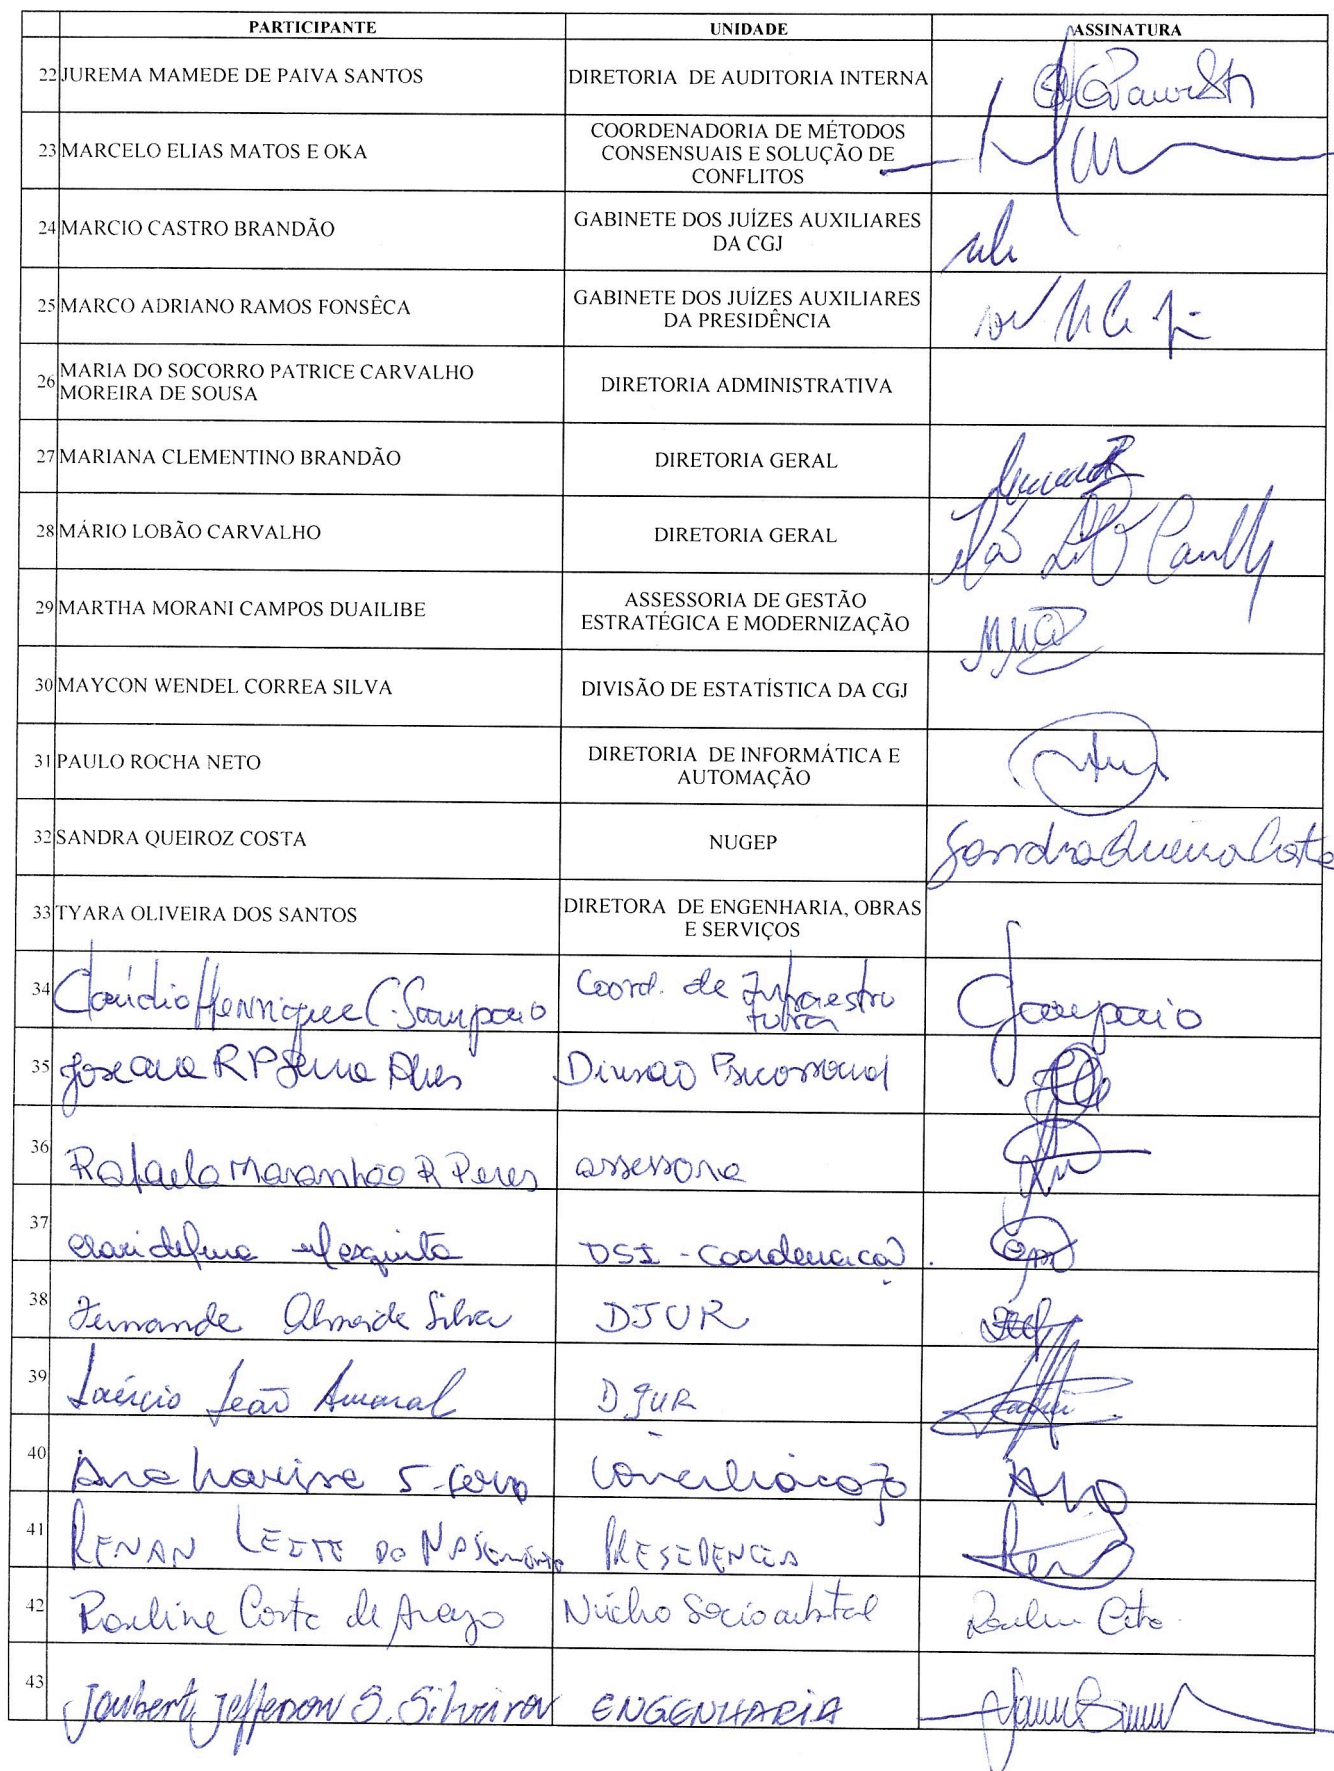 PARTICIPANTE UNIDADE ASSINATURA
22 JUREMA MAMEDE DE PAIVA SANTOS DIRETORIA DE AUDITORIA INTERNA
23 MARCELO ELIAS MATOS E OKA COORDENADORIA DE MÉTODOS
CONSENSUAIS E SOLUÇÃO DE
CONFLITOS
24 MARCIO CASTRO BRANDÃO GABINETE DOS JUÍZES AUXILIARES
DA CGJ
25 MARCO ADRIANO RAMOS FONSÊCA GABINETE DOS JUÍZES AUXILIARES
DA PRESIDÊNCIA
26 MARIA DO SOCORRO PATRICE CARVALHO
MOREIRA DE SOUSA DIRETORIA ADMINISTRATIVA
27 MARIANA CLEMENTINO BRANDÃO DIRETORIA GERAL
28 MÁRIO LOBÃO CARVALHO DIRETORIA GERAL
29 MARTHA MORANI CAMPOS DUAILIBE ASSESSORIA DE GESTÃO
ESTRATÉGICA E MODERNIZAÇÃO
30 MAYCON WENDEL CORREA SILVA DIVISÃO DE ESTATÍSTICA DA CGJ
31 PAULO ROCHA NETO DIRETORIA DE INFORMÁTICA E
AUTOMAÇÃO
32 SANDRA QUEIROZ COSTA NUGEP Sandra Queiroz Costa
33 TYARA OLIVEIRA DOS SANTOS DIRETORA DE ENGENHARIA, OBRAS
E SERVIÇOS
34 Claúdio Henrique C. Sampaio Coord. de Infraestru
tura Sampaio
35 Joseana R P Serra Alves Divisão Psicossocial
36 Rafaela Maranhão R Peres assessora
37 Claridelma Mesquita DSI - Coordenação
38 Fernanda Almeida Silva DJUR
39 Laércio Leão Amaral DJUR
40 Ana Larissa S. Conciliação Ana
41 RENAN LEITE DO NASCIMENTO PRESIDENCIA
42 Pauline Costa de Araujo Núcleo Socioambiental
43 Joubert Jefferson S. Silveira ENGENHARIA